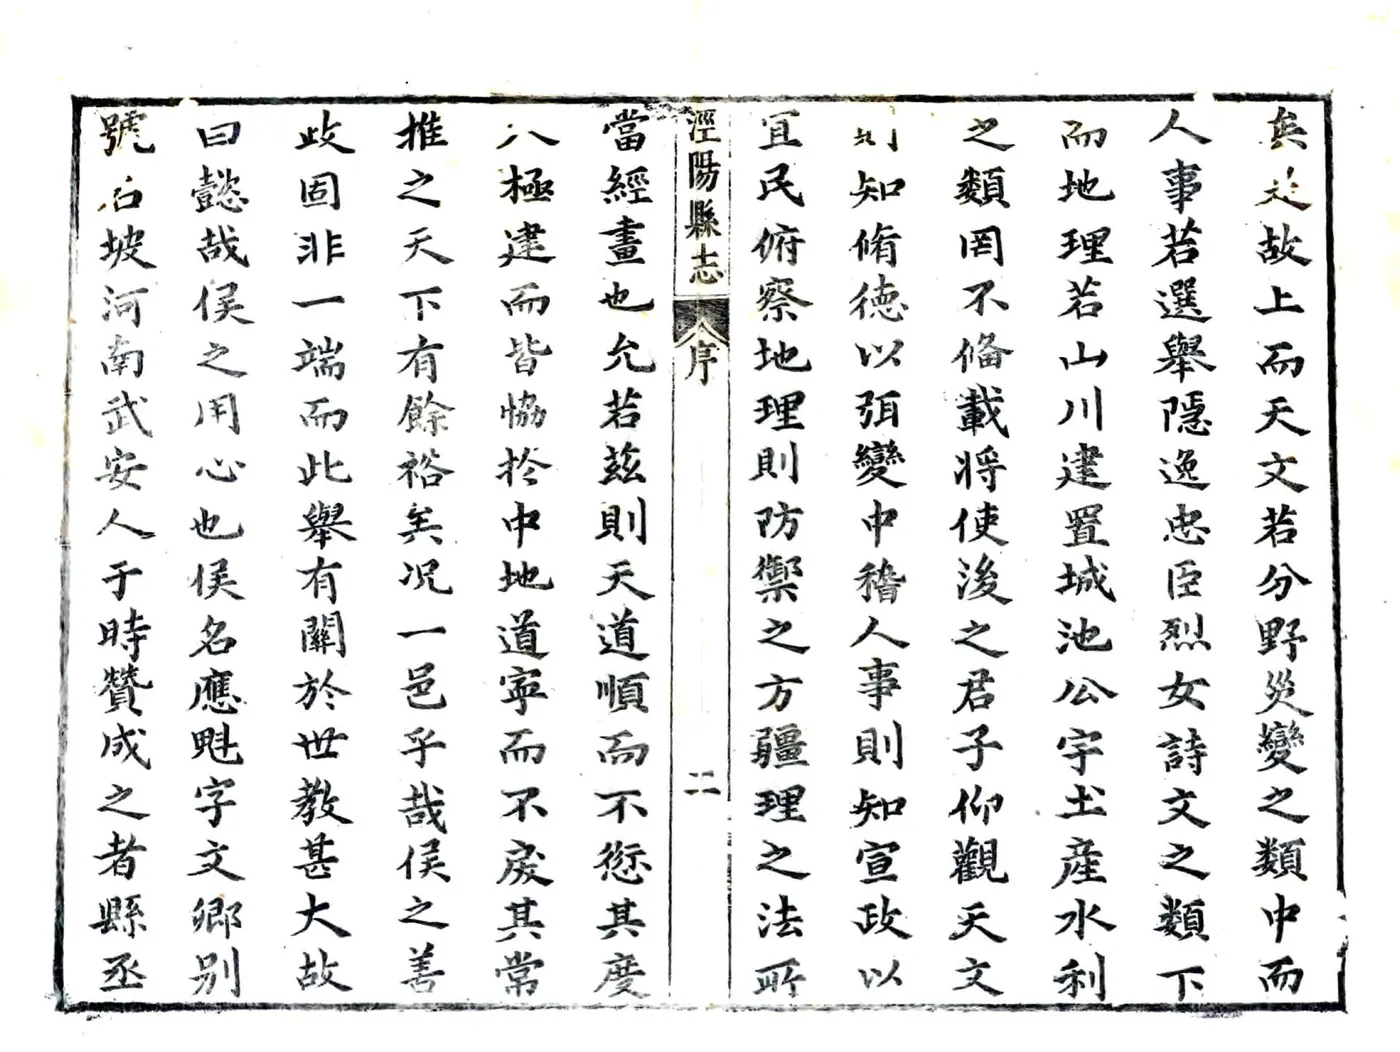 矣是故上而天文若分野災變之類中而
人事若選舉隱逸忠臣烈女詩文之類下
而地理若山川建置城池公宇土産水利
之類罔不俻載将使後之君子仰觀天文
則知脩德以弭變中稽人事則知宣政以
宜民俯察地理則防禦之方疆理之法所
涇陽縣志
序
二
當經畫也允若茲則天道順而不愆其度
八極建而皆恊扵中地道寜而不戾其常
推之天下有餘裕矣况一邑乎哉侯之善
政固非一端而此舉有關於世教甚大故
曰懿哉侯之用心也侯名應魁字文鄉别
號石坡河南武安人于時贊成之者縣丞